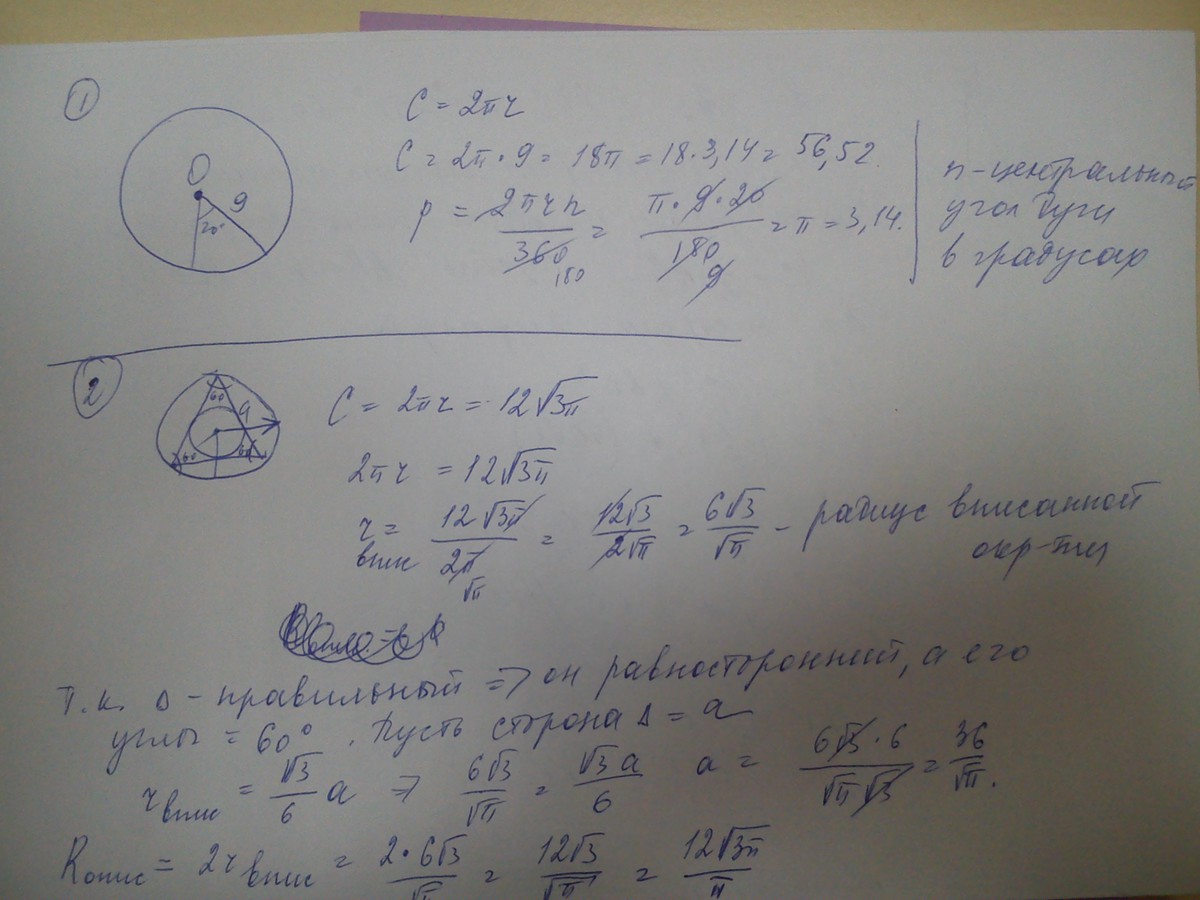 ①
O
9
20°
C = 2πr
C = 2π·9 = 18π = 18·3,14 = 56,52.
p = 2πrn/360 180 = π·9·20/180 9 = π = 3,14.
n-центральный
угол дуги
в градусах
②
60
a
60
60
C = 2πr = 12√3π
2πr = 12√3π
r вписи = 12√3π/2π √π = 12√3/2√π = 6√3/√π - радиус вписанной
окр-ти
Т.к. Δ - правильный => он равносторонний, а его
углы = 60°. Пусть сторона Δ = a
r впис = √3/6 a => 6√3/√π = √3a/6 a = 6√3·6/√π√3 = 36/√π.
R опис = 2r впис = 2·6√3/√π = 12√3/√π = 12√3π/π